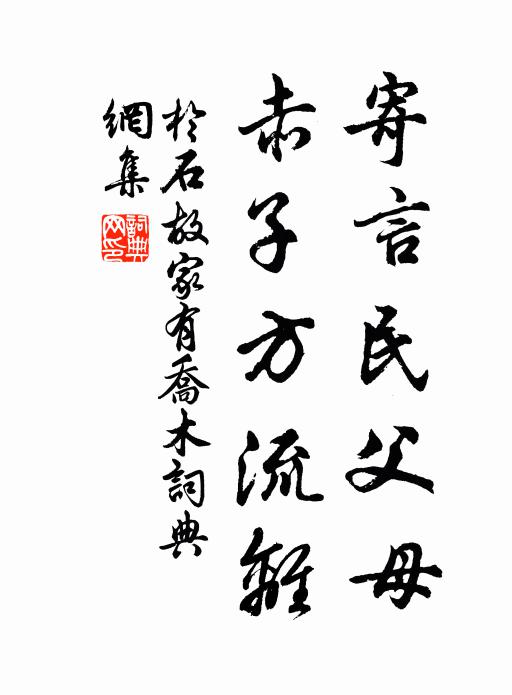 寄言民父母
赤子方流離
於石故家有喬木詞典
網集
詞典
网印